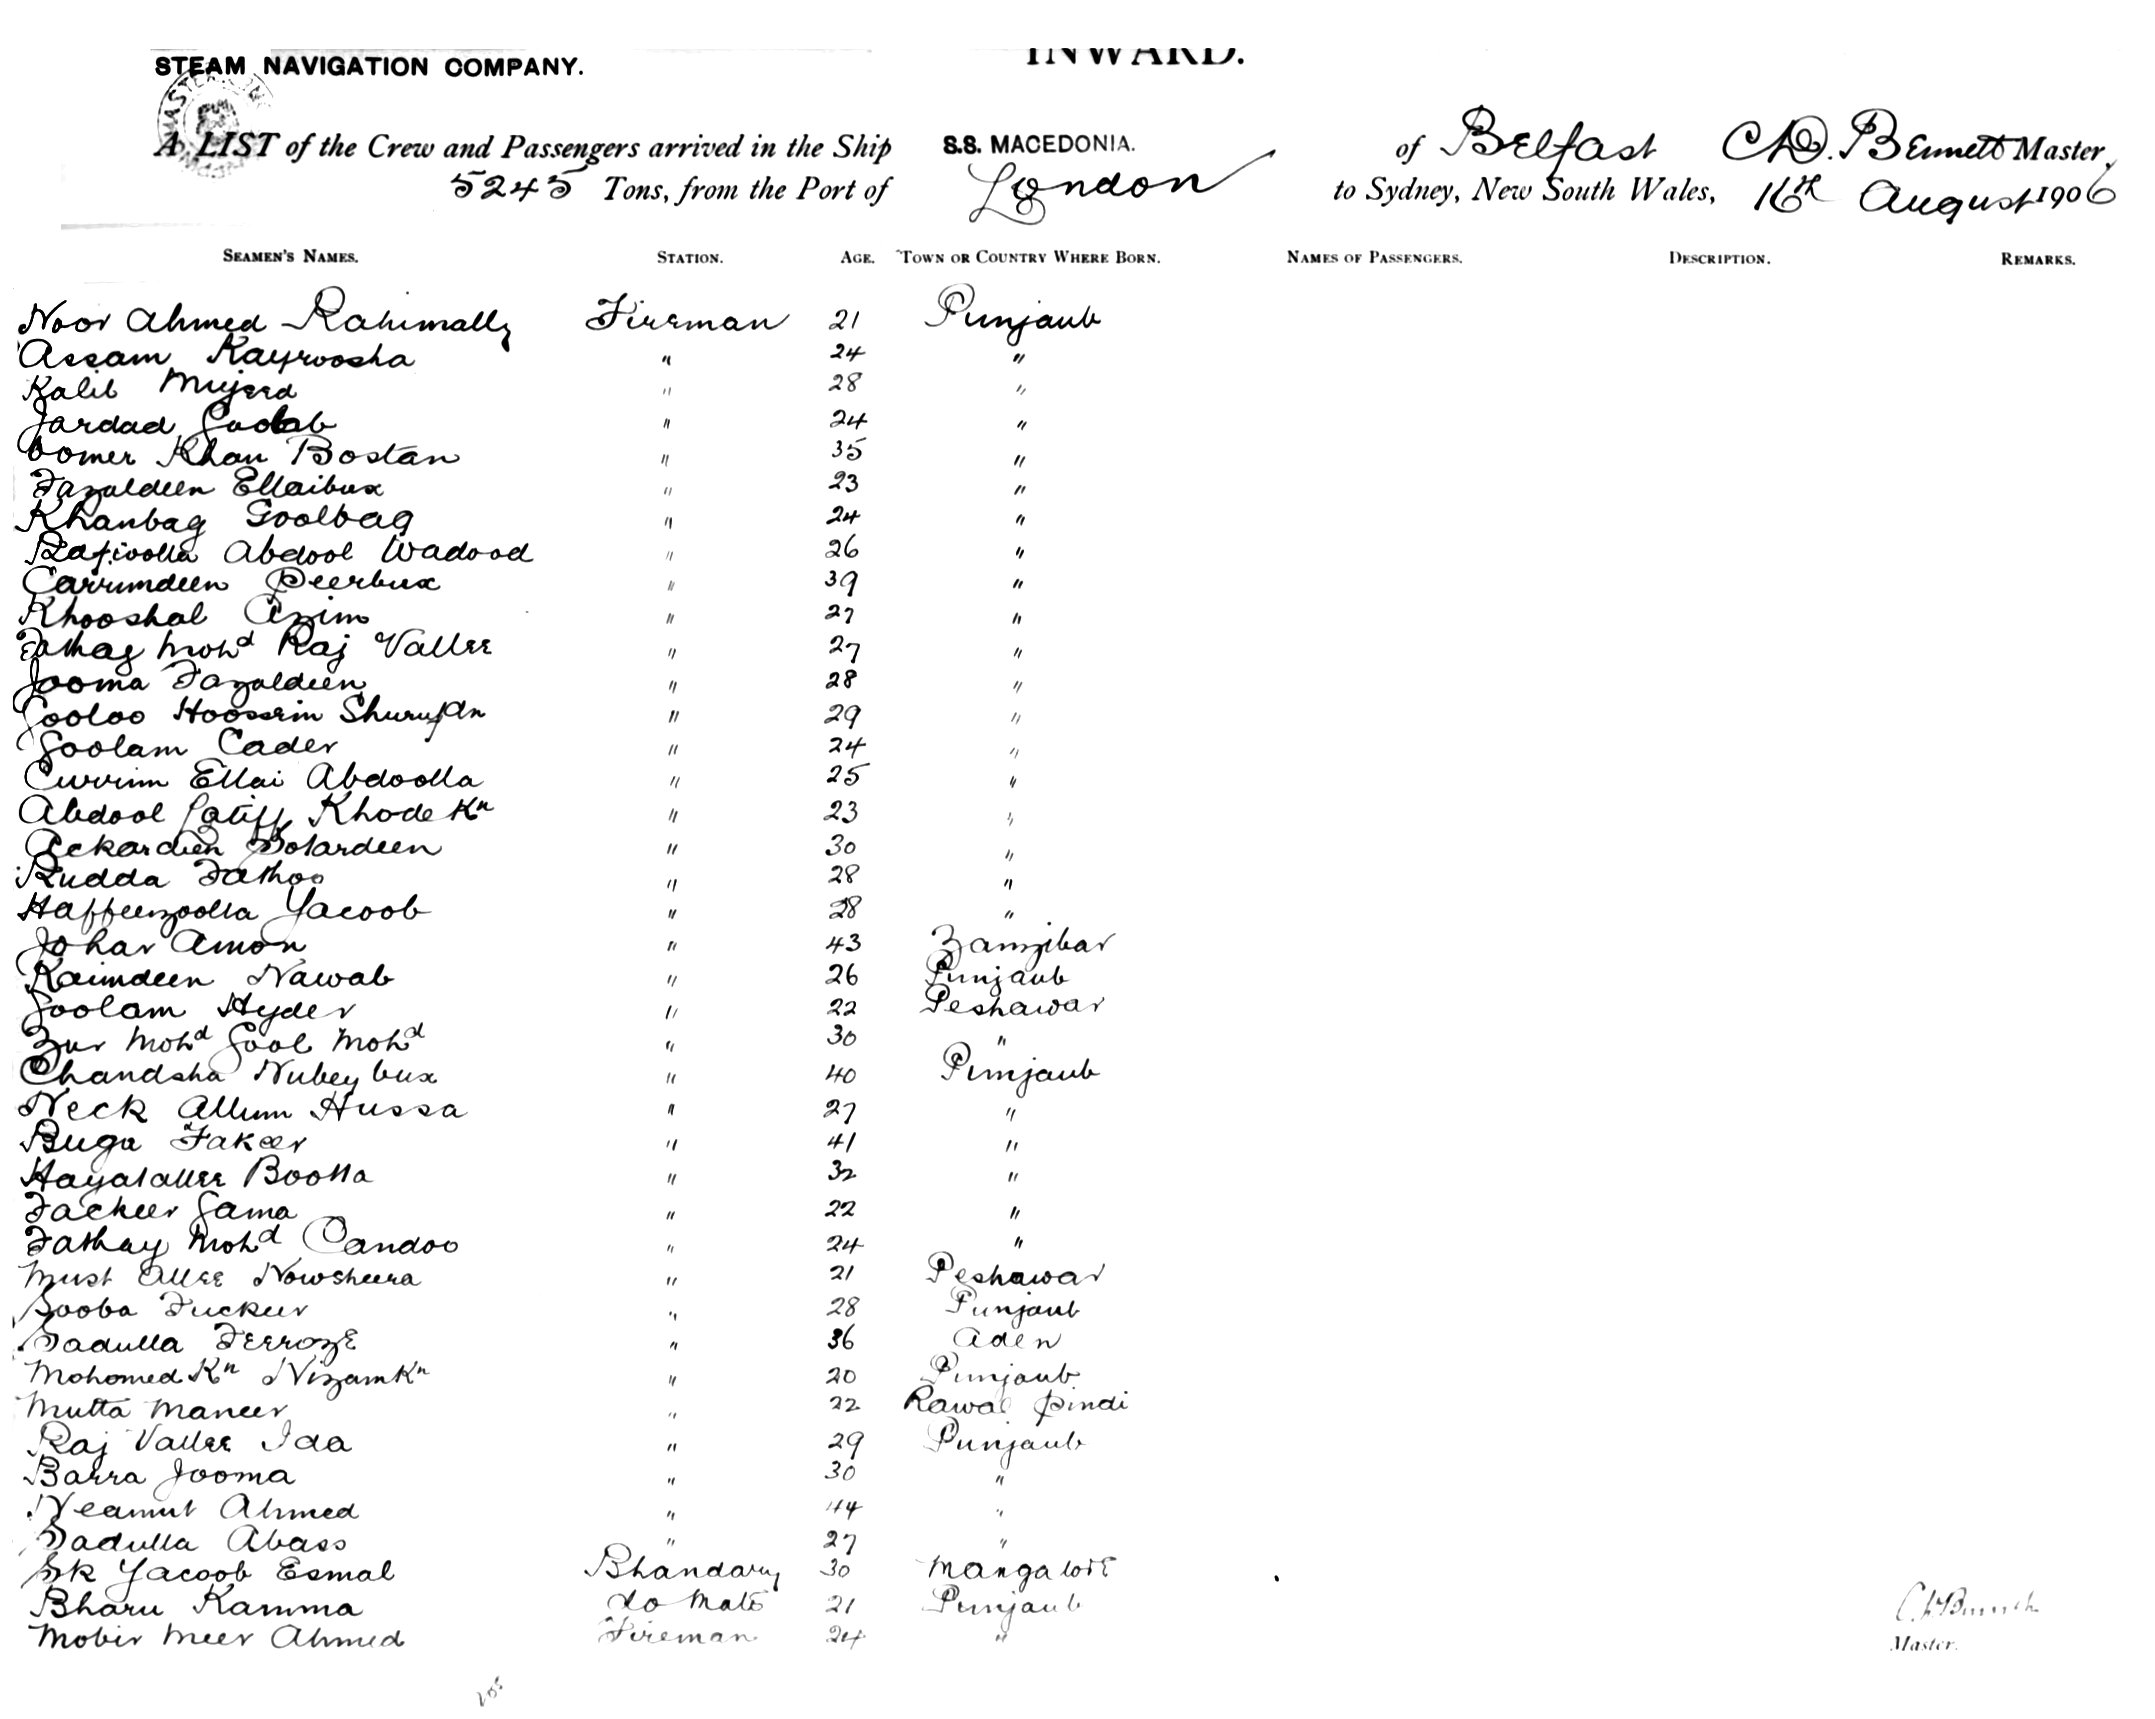 STEAM NAVIGATION COMPANY.
INWARD.
A LIST of the Crew and Passengers arrived in the Ship S.S. MACEDONIA. of Belfast CD. Bennett Master,
5245 Tons, from the Port of London to Sydney, New South Wales, 16th August 1906
SEAMEN'S NAMES. STATION. AGE. TOWN OR COUNTRY WHERE BORN. NAMES OF PASSENGERS. DESCRIPTION. REMARKS.
Noor Ahmed Rahimally Fireman 21 Punjaub
Assam Kayroosha " 24 "
Kalib Mujeed " 28 "
Jardad Goolab " 24 "
Oomer Khan Bostan " 35 "
Fazuldeen Ellaibux " 23 "
Khanbag Goolbag " 24 "
Rafivolla Abdool Wadood " 26 "
Carrimdeen Peerbux " 39 "
Khooshal Azim " 27 "
Fathay Mohd Raj Vallee " 27 "
Jooma Fazuldeen " 28 "
Gooloo Hoossein " 29 "
Goolam Cader " 24 "
Currim Ellai Abdoolla " 25 "
Abdool Latiff Khode Kn " 23 "
Ackardeen " 30 "
Rudda Fathoo " 28 "
Haffeezoolla Yacoob " 28 "
Johar Amon " 43 Zanzibar
Raimdeen Nawab " 26 Punjaub
Goolam Hyder " 22 Peshawar
Zur Mohd Gool Mohd " 30 "
Chandsha Nubeybux " 40 Punjaub
Neck Allum Hussa " 27 "
Buga Fakeer " 41 "
Hayatallee Bootta " 32 "
Fackeer Gama " 22 "
Fathay Mohd Candoo " 24 "
Must Allee Nowsheera " 21 Peshawar
Booba Fuckeer " 28 Punjaub
Sadulla Feeroze " 36 Aden
Mohomed Kn Nizam Kn " 20 Punjaub
Mutta Maneer " 22 Rawal pindi
Raj Vallee Ida " 29 Punjaub
Barra Jooma " 30 "
Neamut Ahmed " 44 "
Sadulla Abass " 27 "
Sk Yacoob Esmal Bhandary 30 Mangalore
Bharu Kamma do Mate 21 Punjaub
Mobir Meer Ahmed Fireman 24 "
Master.